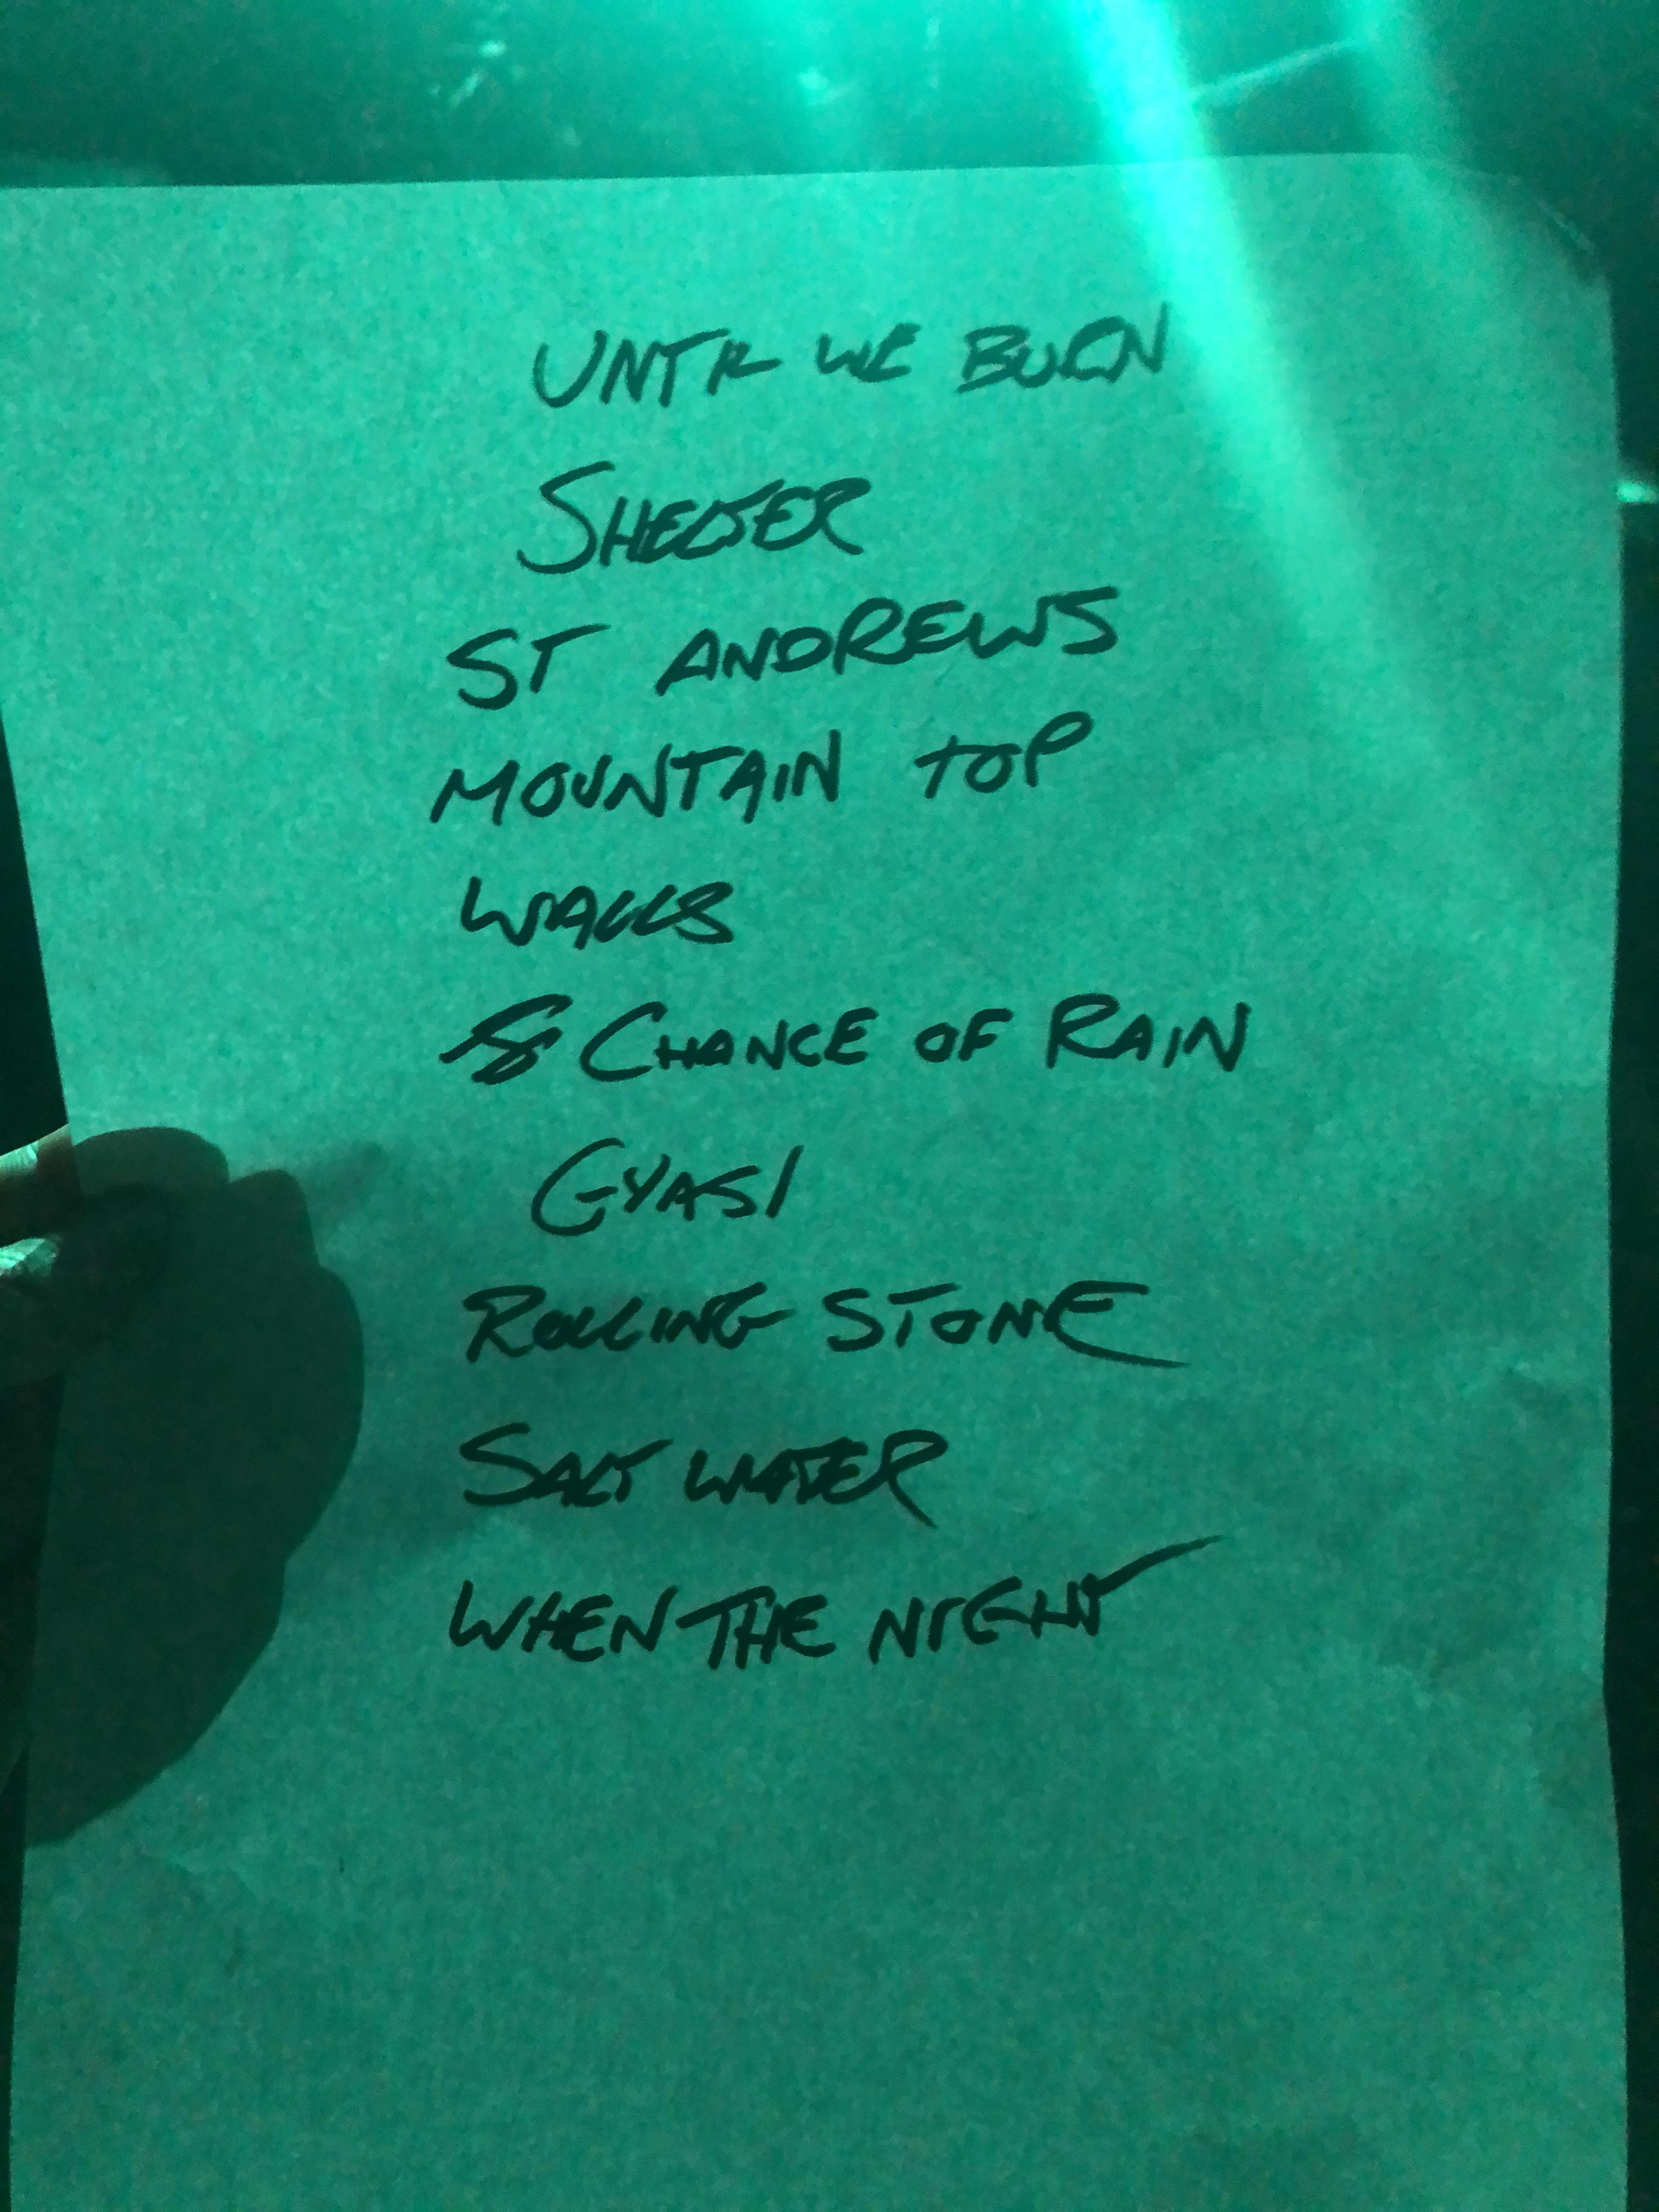 UNTIL WE BURN
SHELTER
ST ANDREWS
MOUNTAIN TOP
WALLS
CHANCE OF RAIN
GYASI
ROLLING STONE
SALT WATER
WHEN THE NIGHT